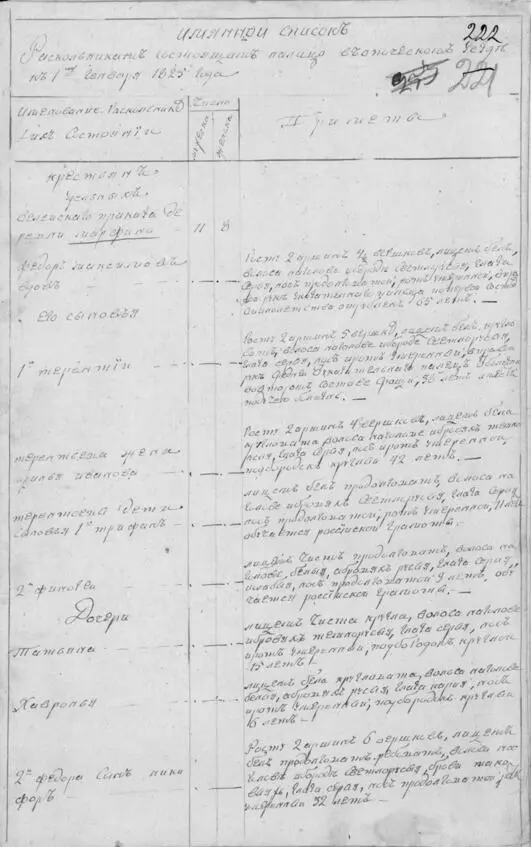 имянной списокъ
222
Раскольникамъ состоящимъ уезде
къ 1му Генваря 1825 года
221
именование Раскольников
ихъ состоянии
Число
мужеска
женска
Приметы
крестьянъ
удельныхъ
приказа де
ревни марфина
11
8
федоръ максимовъ
вдовъ
Ростъ 2 аршинъ 4 1/2 вершковъ, лицемъ белъ
волоса наголове ибороде светлорусыя, глаза
серыя, носъ продолговатой, ротъ умеренной
65 летъ.
Его сыновья
1й терентий
Ростъ 2 аршинъ 5 вершковъ, лицемъ белъ, кругло
ватъ, волоса наголове ибороде светлорусыя,
глаза серыя, носъ иротъ умеренной
палецъ
38 летъ
терентьева жена
ирина иванова
Ростъ 2 аршинъ 4 вершковъ, лицемъ бела
кругловата волоса наголове ибровяхъ темно
русыя, глаза серыя, носъ иротъ умеренной
подбородокъ круглой 42 летъ.
терентьева дети
сыновья 1й трифанъ
лицемъ белъ продолговатъ, волоса на
голове ибровяхъ светлорусыя, глаза серыя
носъ продолговатой, ротъ умеренной, 11 летъ
обучается российской грамоте.
2й
лицемъ чистъ продолговатъ, волоса на
голове белыя, ибровяхъ русыя, глаза серыя
носъ продолговатой 9 летъ, обу
чается российской грамоте.
Дочери
Татьяна
лицемъ чиста кругла, волоса наголове
ибровяхъ темнорусыя, глаза серыя, носъ
иротъ умеренной, подбородокъ кругловатой
15 летъ
Хавронья
лицемъ бела кругловата, волоса наголове
белыя, ибровяхъ русыя, глаза кария, носъ
иротъ умеренной, подбородокъ кругловатой
16 летъ
2й федора сынъ ники
форъ
Ростъ 2 аршинъ 6 вершковъ, лицемъ
белъ продолговатъ рябоватъ, волоса на
голове ибороде светлорусыя, брови тако
выяжъ, глаза серыя, носъ продолговатой, ротъ
умеренной 32 летъ